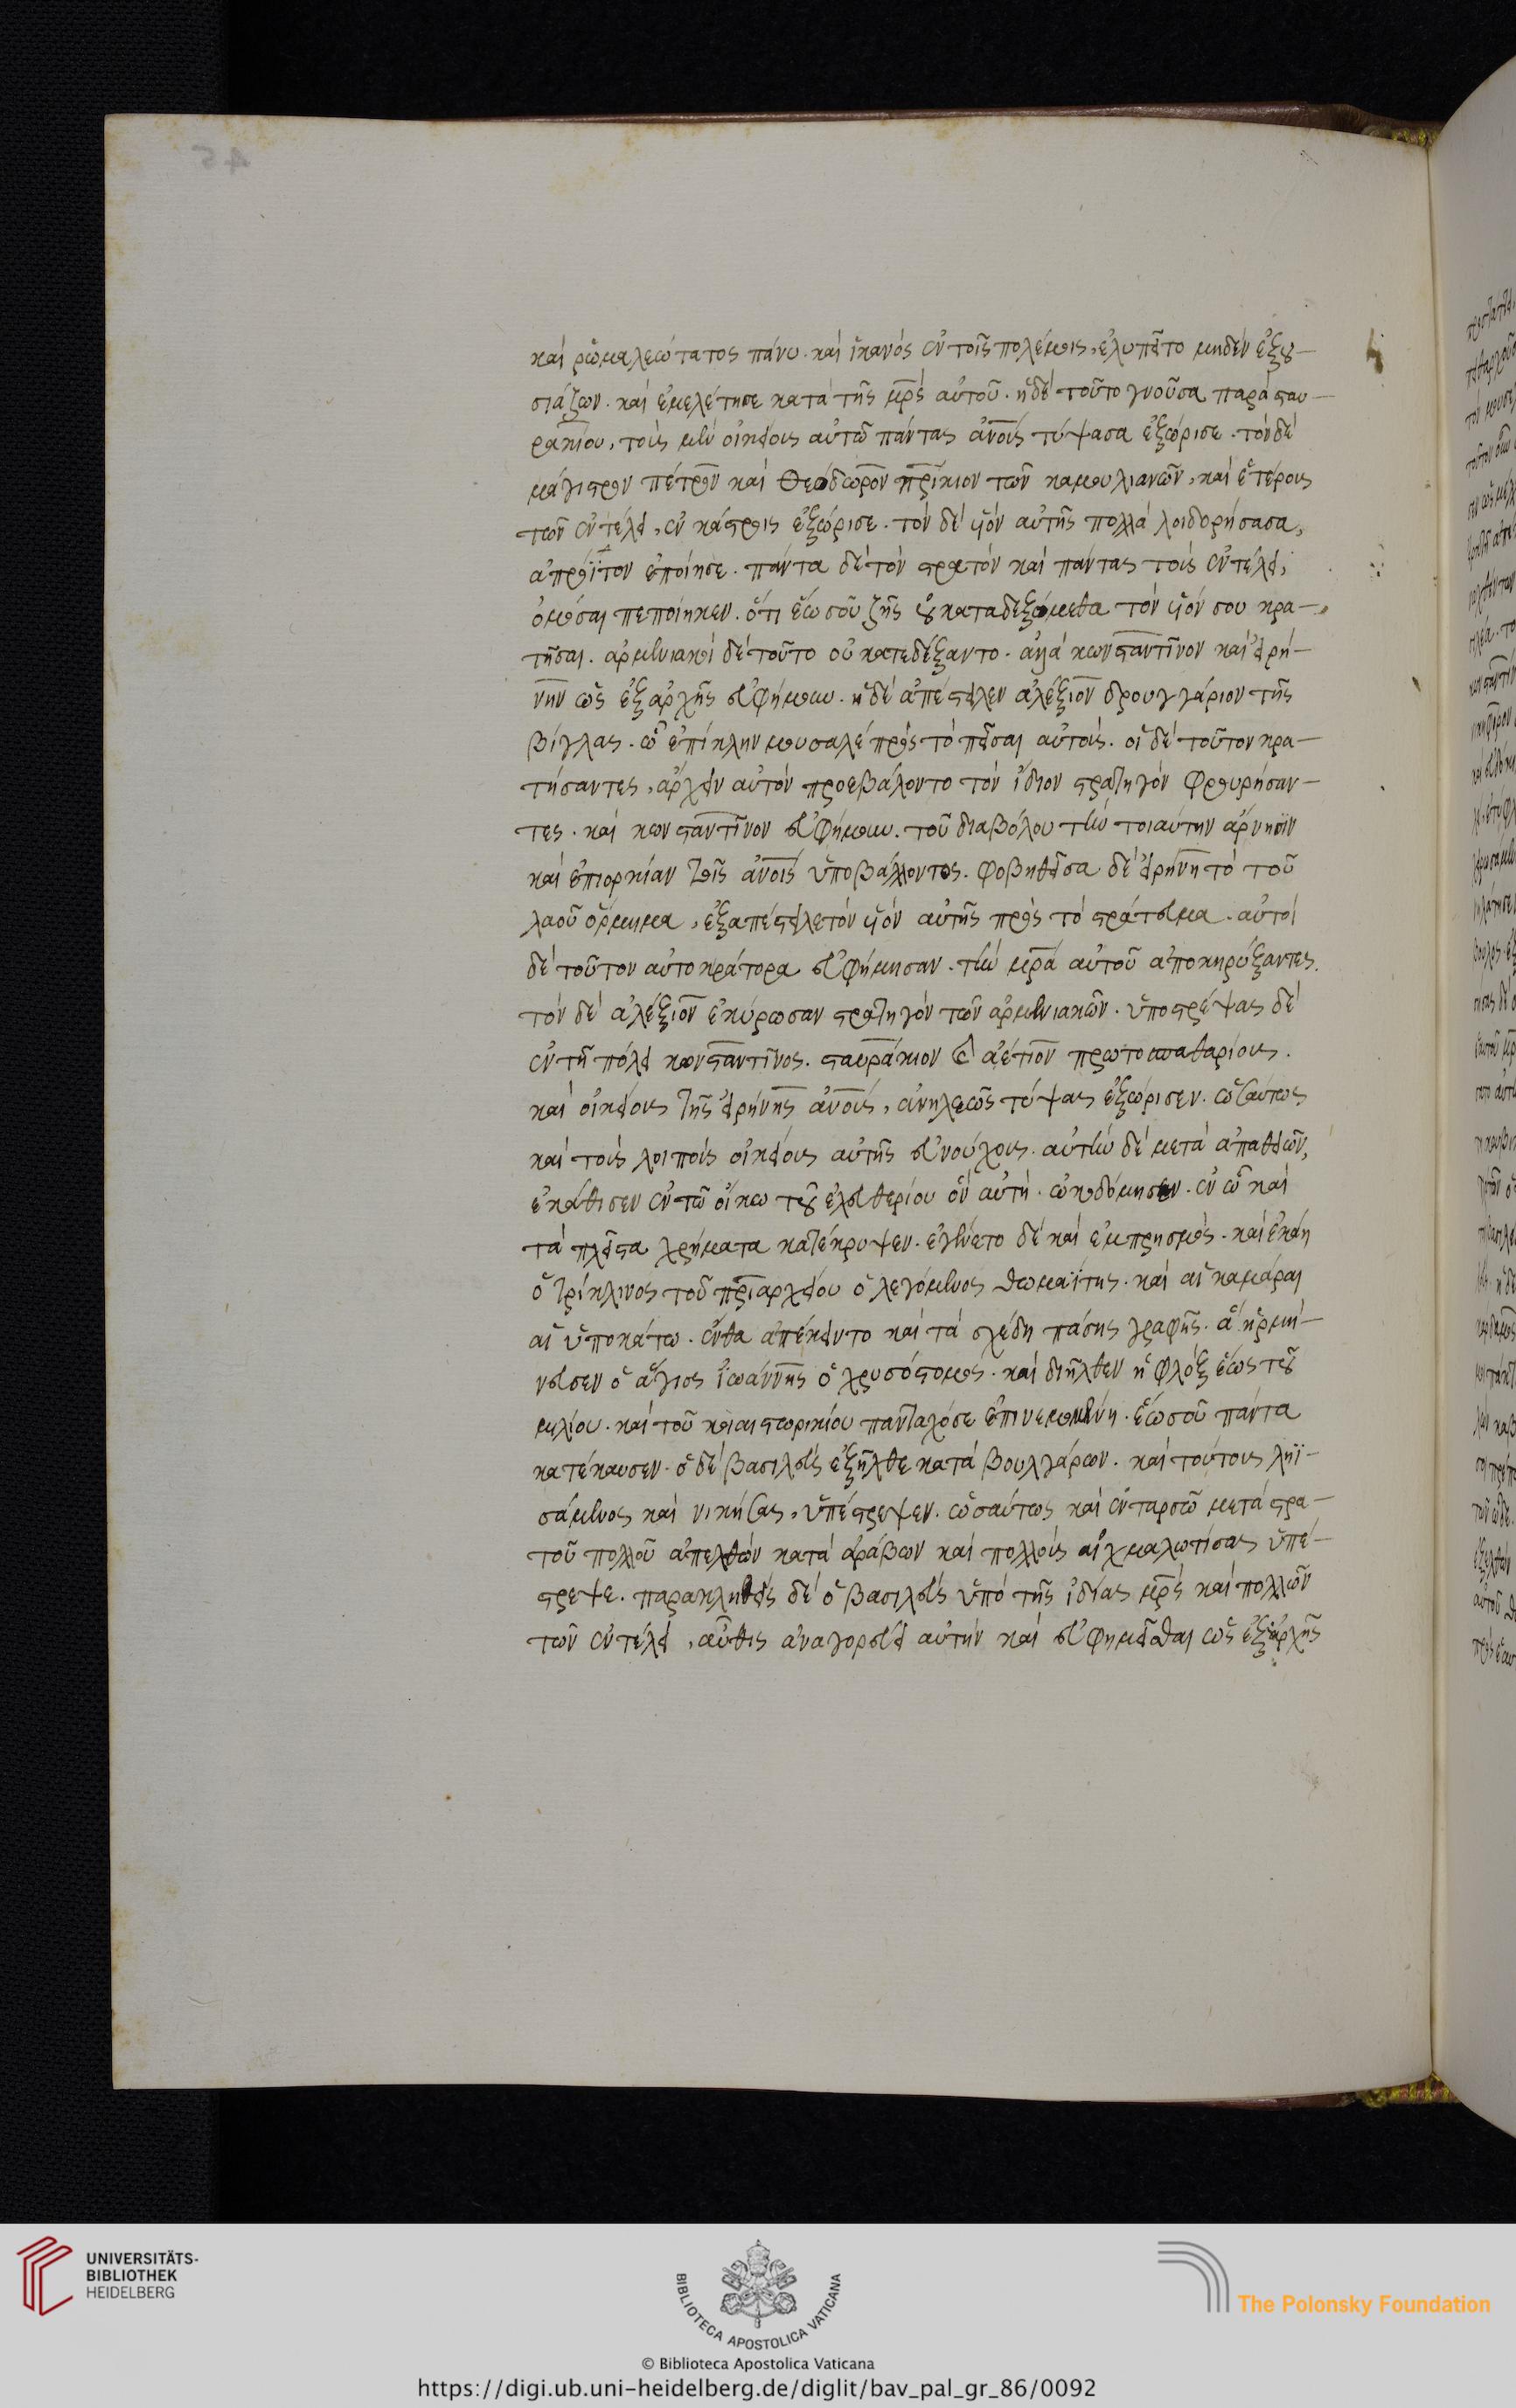 καὶ ῥωμαλεώτατος πάνυ. καὶ ἱκανὸς ἐν τοῖς πολέμοις, ἐλυπεῖτο μηδὲν ἐξου-
σιάζων. καὶ ἐμελέτησε κατὰ τῆς μρ̅ς αὐτοῦ. ἡ δὲ τοῦτο γνοῦσα παρὰ σταυ-
ρακίου, τοὺς μὲν οἰκείους αὐτῶ πάντας ἀνο̅υς τύψασα ἐξώρισε. τὸν δὲ
μάγιστρον πέτρον καὶ θεόδωρον πρίκιον τῶν καμουλιανῶν, καὶ ἑτέρους
τῶν ἐν τέλει, ἐν κάστροις ἐξώρισε. τὸν δὲ υἱὸν αὐτῆς πολλὰ λοιδορήσασα,
ἀπρόϊτον ἐποίησε. πάντα δὲ τὸν στρατὸν καὶ πάντας τοὺς ἐν τέλει,
ὀμόσαι πεποίηκεν. ὅτι ἕως οὗ ζῆς οὐ καταδεξόμεθα τὸν υἱόν σου κρα-
τῆσαι. ἀρμενιακοὶ δὲ τοῦτο οὐ κατεδέξαντο. ἀλλὰ κωνσταντῖνον καὶ εἰρή-
νην ὡς ἐξ ἀρχῆς εὐφήμουν. ἡ δὲ ἀπέστειλεν ἀλέξιον δρουγγάριον τῆς
βίγλας. ὧ ἐπίκλην μουσαλὲ πρὸς τὸ πεῖσαι αὐτούς. οἱ δὲ τοῦτον κρα-
τήσαντες, ἄρχειν αὐτὸν προεβάλοντο τὸν ἴδιον στρατηγὸν φρουρήσαν-
τες. καὶ κωνσταντῖνον εὐφήμουν. τοῦ διαβόλου τὴν τοιαύτην ἄρνησιν
καὶ ἐπιορκίαν τοῖς ἀνο̅ις ὑποβάλλοντος. φοβηθεῖσα δὲ εἰρήνη τὸ τοῦ
λαοῦ ὅρμημα, ἐξαπέστειλε τὸν υἱὸν αὐτῆς πρὸς τὸ στράτευμα. αὐτοὶ
δὲ τοῦτον αὐτοκράτορα εὐφήμησαν. τὴν μρ̅α αὐτοῦ ἀποκηρύξαντες.
τὸν δὲ ἀλέξιον ἐκύρωσαν στρατηγὸν τῶν ἀρμενιακῶν. ὑποστρέψας δὲ
ἐν τῆ πόλει κωνσταντῖνος. σταυράκιον καὶ ἀέτιον πρωτοσπαθαρίους.
καὶ οἰκείους τῆς εἰρήνης ἀνο̅υς, ἀνηλεῶς τύψας ἐξώρισεν. ὡσαύτως
καὶ τοὺς λοιποὺς οἰκείους αὐτῆς εὐνούχους. αὐτὴν δὲ μετὰ ἀπαθειῶν,
ἐκάθισεν ἐν τῶ οἴκω τοῦ ἐλευθερίου ὃν αὐτὴ ὠκοδόμησεν. ἐν ὧ καὶ
τὰ πλεῖστα χρήματα κατέκρυψεν. ἐγένετο δὲ καὶ ἐμπρησμὸς. καὶ ἐκάη
ὁ τρίκλινος τοῦ πριαρχείου ὁ λεγόμενος θωμαΐτης. καὶ αἱ καμάραι
αἱ ὑποκάτω. ἔνθα ἀπέκειντο καὶ τὰ σχέδη πάσης γραφῆς. ἃ ἡρμή-
νευσεν ὁ ἅγιος ἰωάννης ὁ χρυσόστομος. καὶ διῆλθεν ἡ φλὸξ ἕως τοῦ
μιλίου. καὶ τοῦ κοιαιστωρικίου πανταχόσε ἐπινεμομένη. ἕως οὗ πάντα
κατέκαυσεν. ὁ δὲ βασιλεὺς ἐξῆλθε κατὰ βουλγάρων. καὶ τούτους ληϊ-
σάμενος καὶ νικήσας, ὑπέστρεψεν. ὡσαύτως καὶ ἐν ταρσῶ μετὰ στρα-
τοῦ πολλοῦ ἀπελθὼν κατὰ ἀράβων καὶ πολλοὺς αἰχμαλωτίσας ὑπέ-
στρεψε. παρακληθεὶς δὲ ὁ βασιλεὺς ὑπὸ τῆς ἰδίας μρ̅ς καὶ πολλῶν
τῶν ἐν τέλει, αὖθις ἀναγορεύει αὐτὴν καὶ εὐφημεῖσθαι ὡς ἐξ ἀρχῆς
UNIVERSITÄTS-
BIBLIOTHEK
HEIDELBERG
BIBLIOTECA APOSTOLICA VATICANA
The Polonsky Foundation
© Biblioteca Apostolica Vaticana
https://digi.ub.uni-heidelberg.de/diglit/bav_pal_gr_86/0092